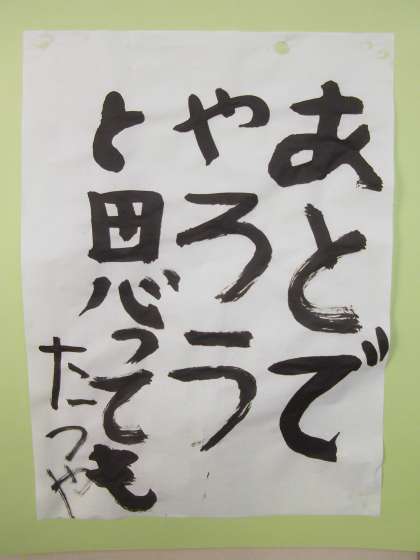 あとで
やろう
と思っても
たつや